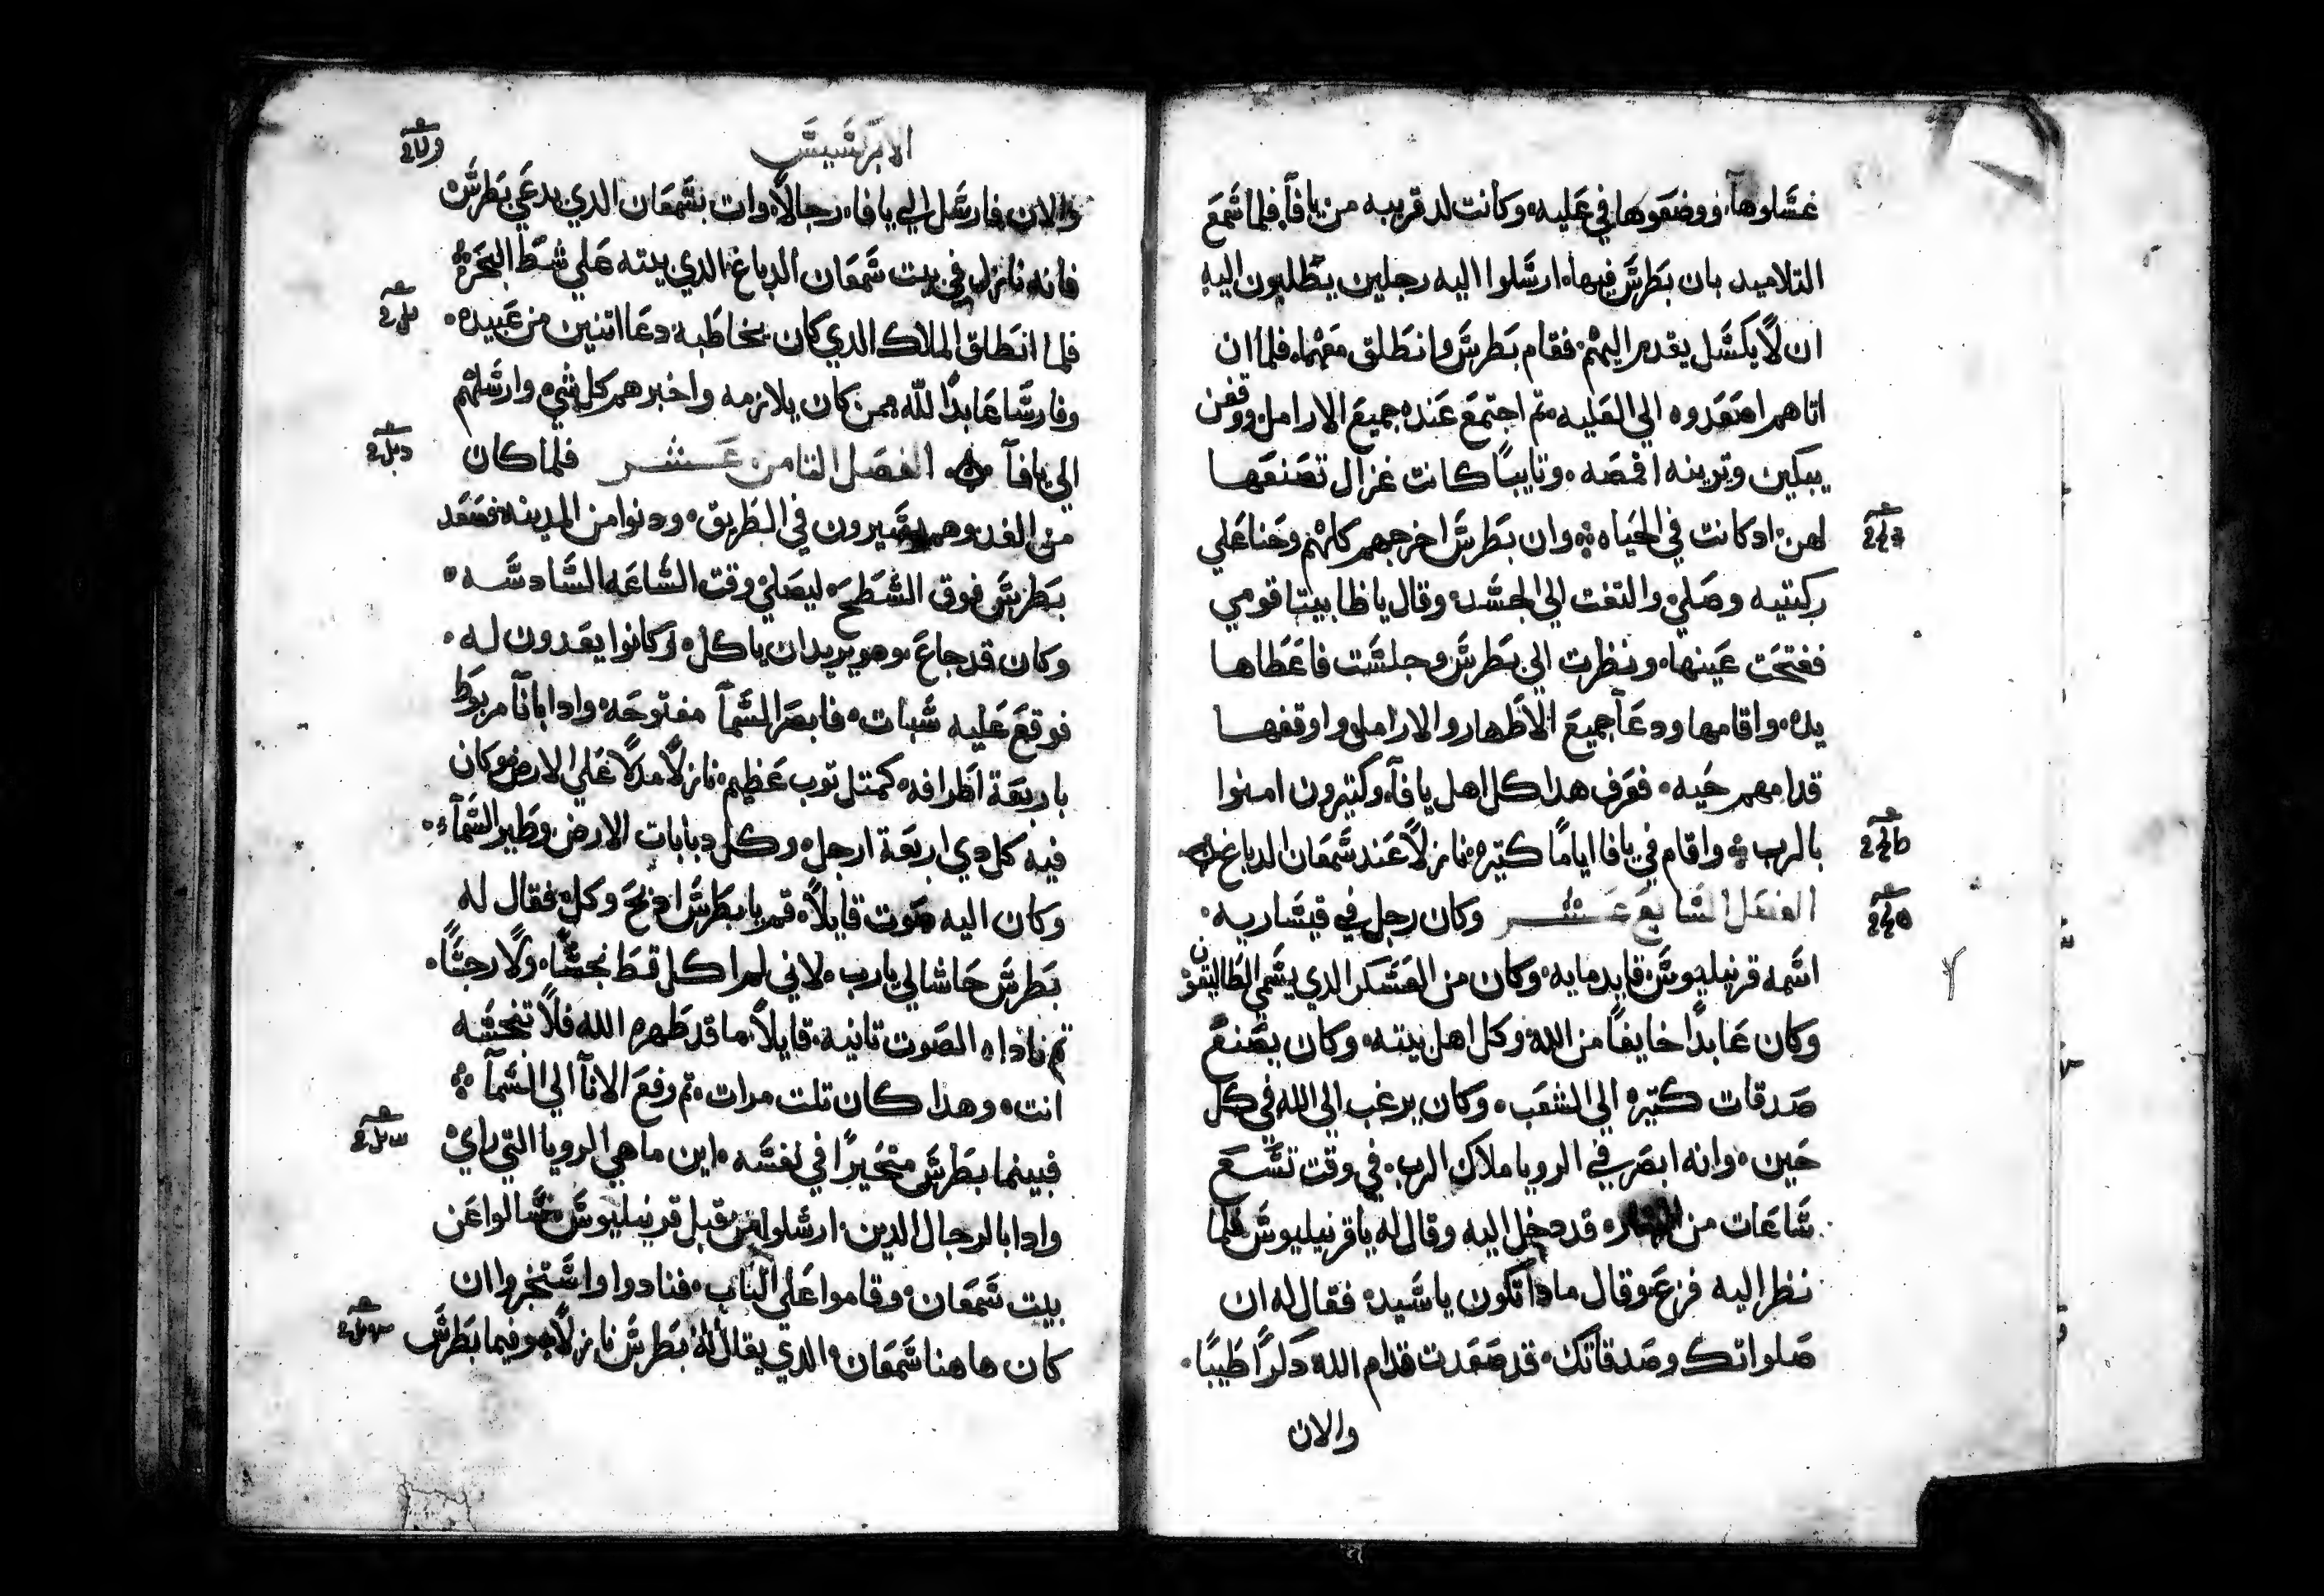 غسلوها، ووضعوها في عليه، وكانت لد قريبه من يافا، فلما سمع
التلاميد بان بطرس فيها، ارسلوا اليه رجلين يطلبون اليه
ان لا يكسل يقدم اليهم، فقام بطرس وانطلق معهما، فلما ان
اتاهم اصعدوه الي العليه، تم اجتمع عنده جميع الارامل ووقفن
يبكين وترينه اقمصه، وتايبا كانت غزال تصنعها
لهن، اد كانت في الحياه ۞ وان بطرس اخرجهم كلهم وحنا علي
ركبتيه وصلي، والتفت الي الجسد، وقال يا ظابيتا قومي
ففتحت عينها، ونظرت الي بطرس وجلست فاعطاها
يده، واقامها ودعا جميع الاطهار والارامل واوقفها
قدامهم حيه، فعرف هدا كل اهل يافا، وكتيرون امنوا
بالرب ۞ واقام في يافا اياما كتيره نازلا عند سمعان الدباغ
الفصل السابع عشر وكان رجل في قيساريه،
اسمه قرنيليوس، قايد مايه، وكان من العسكر الدي يسمي الطاليقون
وكان عابدا خايفا من الله، وكل اهل بيته، وكان يصنع
صدقات كتيره الي الشعب، وكان يرغب الي الله في كل
حين، وانه ابصر في الرويا ملاك الرب، في وقت تسع
ساعات من النهار، قد دخل اليه وقال له يا قرنيليوس فلما
نظر اليه فزع، وقال مادا تكون يا سيده فقال له ان
صلواتك وصدقاتك، قد صعدت قدام الله دكرا طيبا،
والان
الابركسيس
والان فارسل الي يافا، رجالا، وات بسمعان الدي يدعي بطرس
فانه نازل في بيت سمعان الدباغ الدي بيته علي شط البحر ۞
فلما انطلق الملاك الدي كان يخاطبه دعا اتنين من عبيده،
وفارسا عابدا لله ممن كان يلازمه واخبرهم كل شي، وارسلهم
الي يافا ۞ الفصل التامن عشر فلما كان
من الغد وهم يسيرون في الطريق، ودنوا من المدينه، فصعد
بطرس فوق السطح، ليصلي وقت الساعه السادسه،
وكان قد جاع، وهو يريد ان ياكل، وكانوا يعدون له،
فوقع عليه سبات، فابصر السما مفتوحه، وادا بانا مربوط
باربعة اطرافه، كمتل توب عظيم، نازلا مدلا علي الارض، وكان
فيه كل دي اربعة ارجل، وكل دبابات الارض وطير السما،
وكان اليه صوت قايلا، قم يا بطرس ادبح وكل، فقال له
بطرس حاشا لي يا رب، لاني لم اكل قط نجسا، ولا رجسا،
تم ناداه الصوت تانيه، قايلا، ما قد طهره الله فلا تنجسه
انت، وهدا كان تلت مرات، تم رفع الانا الي السما ۞
فبينما بطرس متحيرا في نفسه، اين ما هي الرويا التي راي،
وادا بالرجال الدين ارسلوا من قبل قرنيليوس، سالوا عن
بيت سمعان، وقاموا علي الباب، فنادوا واستخبروا ان
كان هاهنا سمعان، الدي يقال له بطرس نازلا، وفيما بطرس